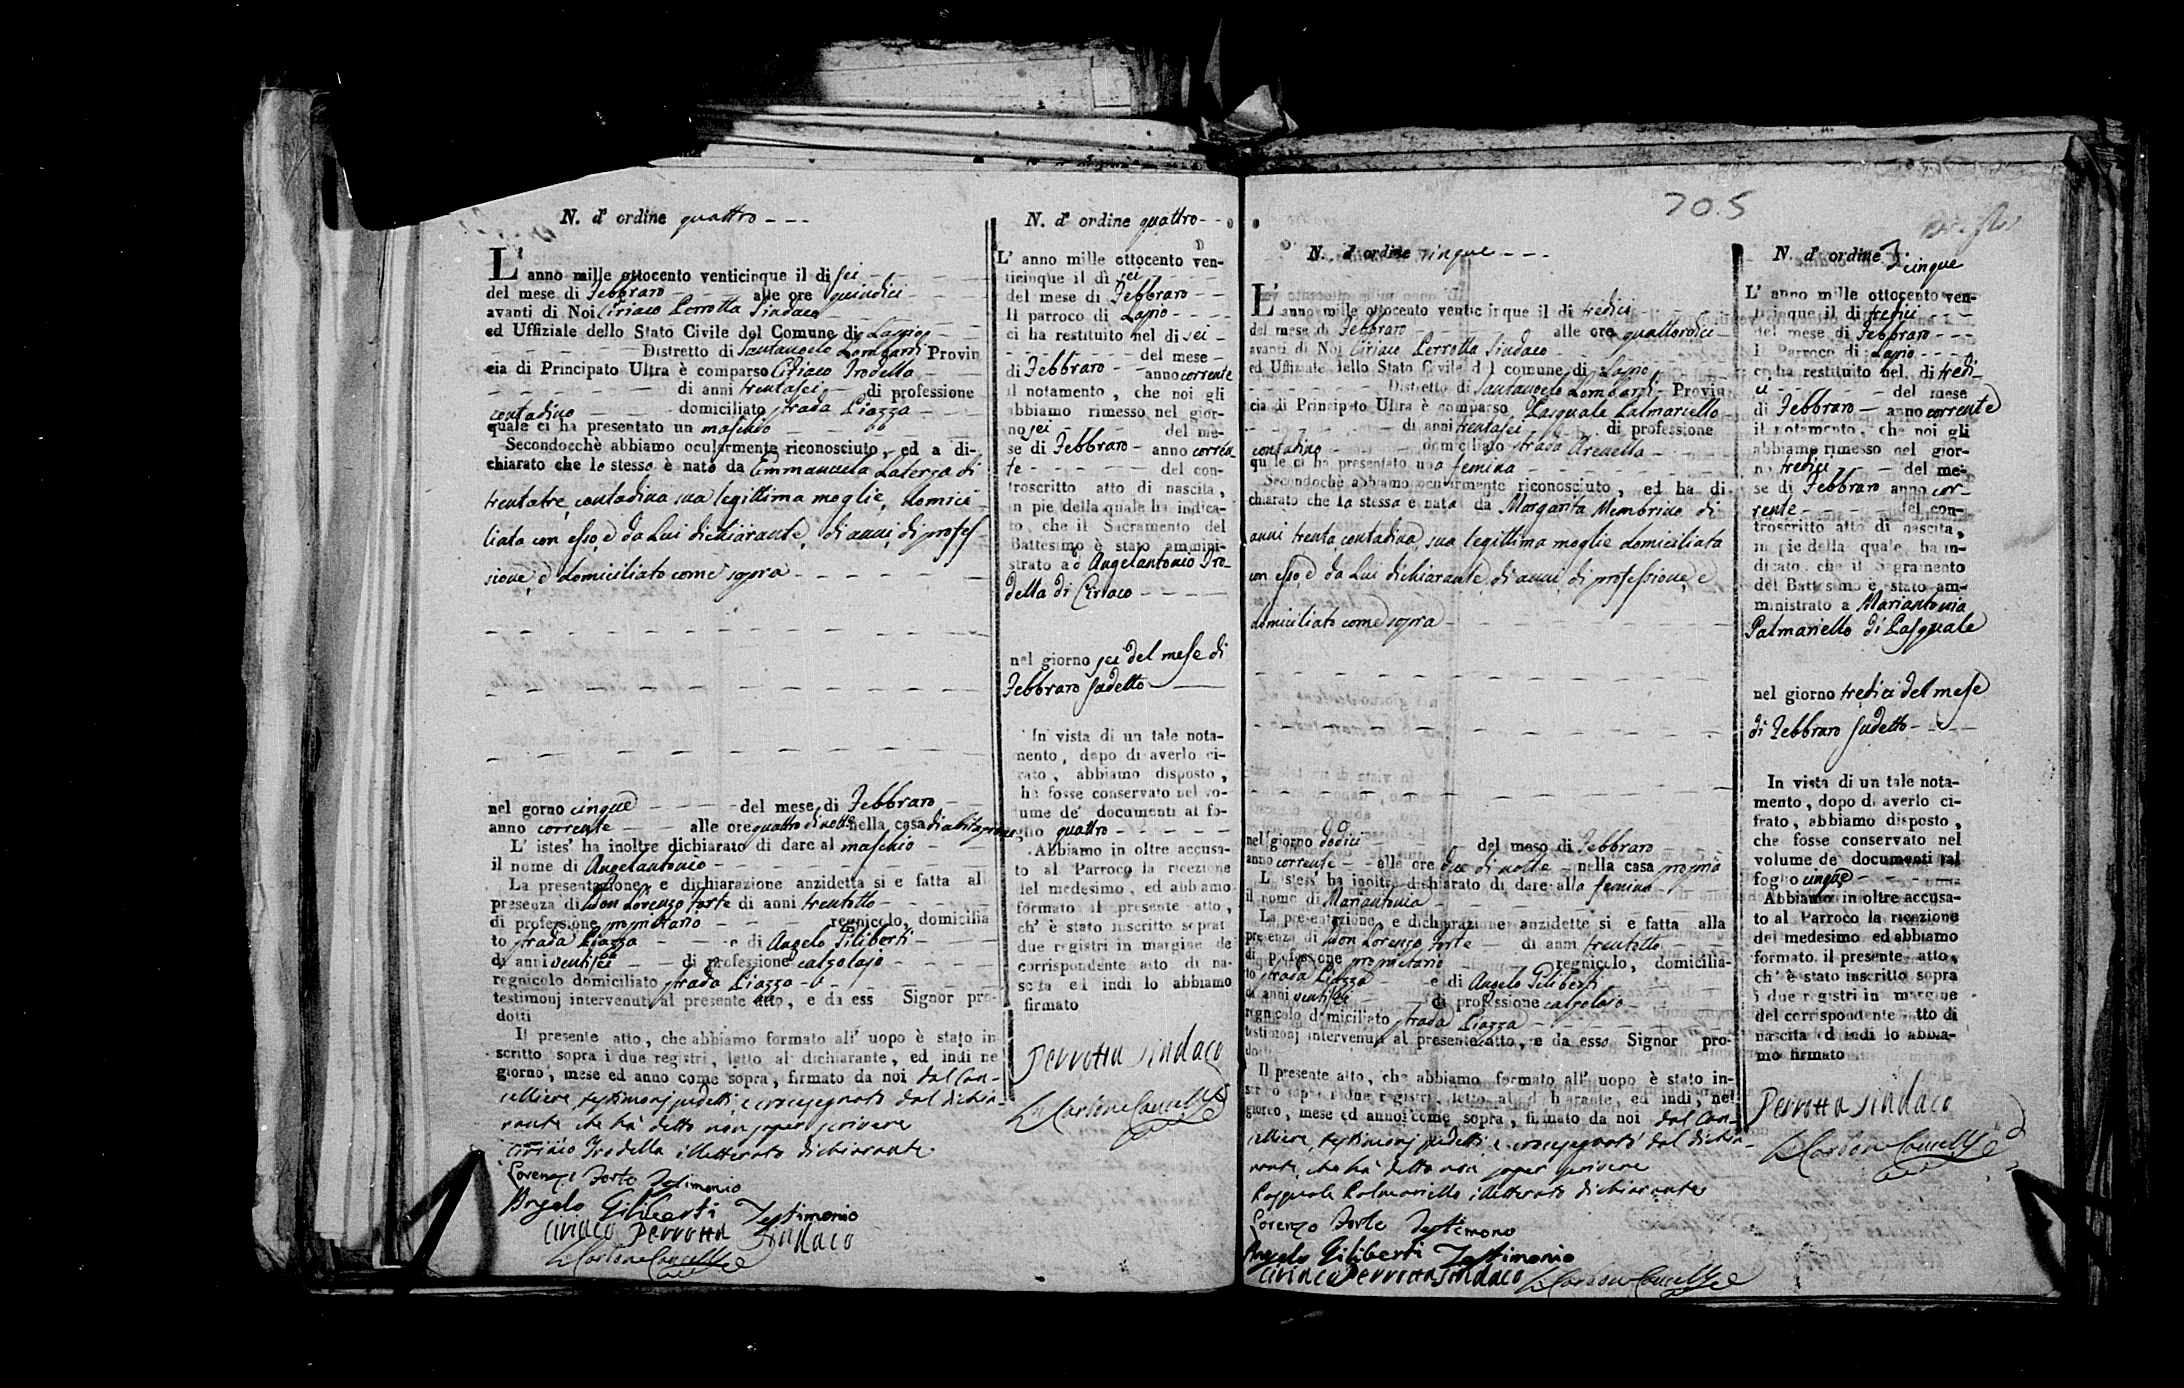 N. d' ordine quattro - - -
L' anno mille ottocento venticinque il dì sei
del mese di Febbraro - alle ore quindici
avanti di Noi Ciriaco Perrotta Sindaco
ed Uffiziale dello Stato Civile del Comune di Lapio
Distretto di Santangelo Lombardi Provin
cia di Principato Ultra è comparso Ciriaco Trodella
di anni trentasei di professione
contadino domiciliato strada Piazza
quale ci ha presentato un maschio
Secondocchè abbiamo ocularmente riconosciuto, ed a di-
chiarato che lo stesso è nato da Emmanuela Laterza di
trentatre, contadina sua legittima moglie, domici-
liata con esso, e da Lui dichiarante, di anni, di profes-
sione, e domiciliato come sopra
nel gorno cinque del mese di Febbraro
anno corrente alle ore quattro di notte nella casa di abitazione
L' istes' ha inoltre dichiarato di dare al maschio
il nome di Angelantonio
La presentazione, e dichiarazione anzidetta si e fatta al
presenza di Don Lorenzo Forte di anni trentotto
di professione proprietario regnicolo, domicilia
to strada Piazza e di Angelo Giliberti
di anni ventisei di professione calzolajo
regnicolo domiciliato strada Piazza
testimonj intervenuti al presente atto, e da ess Signor pro-
dotti
Il presente atto, che abbiamo formato all' uopo è stato in
scritto sopra i due registri, letto al dichiarante, ed indi ne
giorno, mese ed anno come sopra, firmato da noi dal Can-
celliere, testimonj sudetti, e crocesegnato dal dichia-
rante che ha detto non saper scrivere
Ciriaco Trodella illetterato dichiarante
Lorenzo Forte Testimonio
Angelo Giliberti Testimonio
Ciriaco Perrotta Sindaco
N. d' ordine quattro - -
L' anno mille ottocento ven-
ticinque il dì sei
del mese di Febbraro - -
Il parroco di Lapio - - -
ci ha restituito nel di sei -
del mese -
di Febbraro - anno corrente
il notamento, che noi gli
abbiamo rimesso nel gior-
no sei del me-
se di Febbraro - anno corren
te - - - del con-
troscritto atto di nascita,
in pie della quale ha indica-
to, che il Sacramento del
Battesimo è stato ammini-
strato ad Angelantonio Tro-
della di Ciriaco - - -
nel giorno sei del mese di
Febbraro sudetto
In vista di un tale nota-
mento, dopo di averlo ci-
frato, abbiamo disposto,
ha fosse conservato nel vo-
lume de' documenti al fo-
glio quattro - - - -
Abbiamo in oltre accusa-
to al Parroco la ricezione
del medesimo, ed abbiamo
formato il presente atto,
ch' è stato inscritto soprat
due registri in margine de
corrispondente atto di na-
scita ed indi lo abbiamo
firmato
Perrotta Sindaco
705
N. d' ordine cinque - - -
L' anno mille ottocento venticinque il di tredici
del mese di Febbraro alle ore quattordici
avanti di Noi Ciriaco Perrotta Sindaco
ed Uffiziale dello Stato Civile del comune di Lapio
Distretto di Santangelo Lombardi - Provin
cia di Principato Ultra è comparso Pasquale Palmariello
di anni trentasei di professione
contadino domiciliato strada Arenella
quale ci ha presentato una femina
Secondochè abbiamo ocularmente riconosciuto, ed ha di
chiarato che la stessa è nata da Margarita Membrino di
anni trenta contadina, sua legittima moglie domiciliata
con esso, e da Lui dichiarante, di anni, di professione, e
domiciliato come sopra
nel giorno dodici del mese di Febbraro
anno corrente - alle ore due di notte - nella casa propria
L' istess' ha inoltre dichiarato di dare alla femina
il nome di Mariantonia
La presentazione, e dichiarazione anzidette si e fatta alla
presenza di Don Lorenzo Forte di anni trentotto
di professione proprietario regnicolo, domicilia-
to strada Piazza e di Angelo Giliberti
di anni ventisei di professione calzolajo
regnicolo domiciliato strada Piazza
testimonj intervenuti al presente atto, e da esso Signor pro-
dotti
Il presente atto, che abbiamo formato all' uopo è stato in-
scritto sopra i due registri, letto al dichiarante, ed indi, nel
giorno, mese ed anno come sopra, firmato da noi dal Can-
celliere, testimonj sudetti, e crocesegnato dal dichia-
rante che ha detto non saper scrivere
Pasquale Palmariello illetterato dichiarante
Lorenzo Forte Testimonio
Angelo Giliberti Testimonio
Ciriaco Perrotta Sindaco
N. d' ordine cinque
L' anno mille ottocento ven-
ticinque il di tredici - - -
del mese di Febbraro - -
Il Parroco di Lapio - - -
ci ha restituito nel di tredi-
ci - del mese
di Febbraro - anno corrente
il notamento, che noi gli
abbiamo rimesso nel gior-
no tredici - del me-
se di Febbraro anno cor-
rente - - - del con-
troscritto atto di nascita,
in pie della quale ha in-
dicato, che il Sagramento
del Battesimo è stato am-
ministrato a Mariantonia
Palmariello di Pasquale
nel giorno tredici del mese
di Febbraro sudetto - - -
In vista di un tale nota-
mento, dopo di averlo ci-
frato, abbiamo disposto,
che fosse conservato nel
volume de' documenti al
foglio cinque - - -
Abbiamo in oltre accusa-
to al Parroco la ricezione
del medesimo ed abbiamo
formato il presente atto,
ch' è stato inscritto sopra
i due registri in margine
del corrispondente atto di
nascita ed indi lo abbia-
mo firmato
Perrotta Sindaco